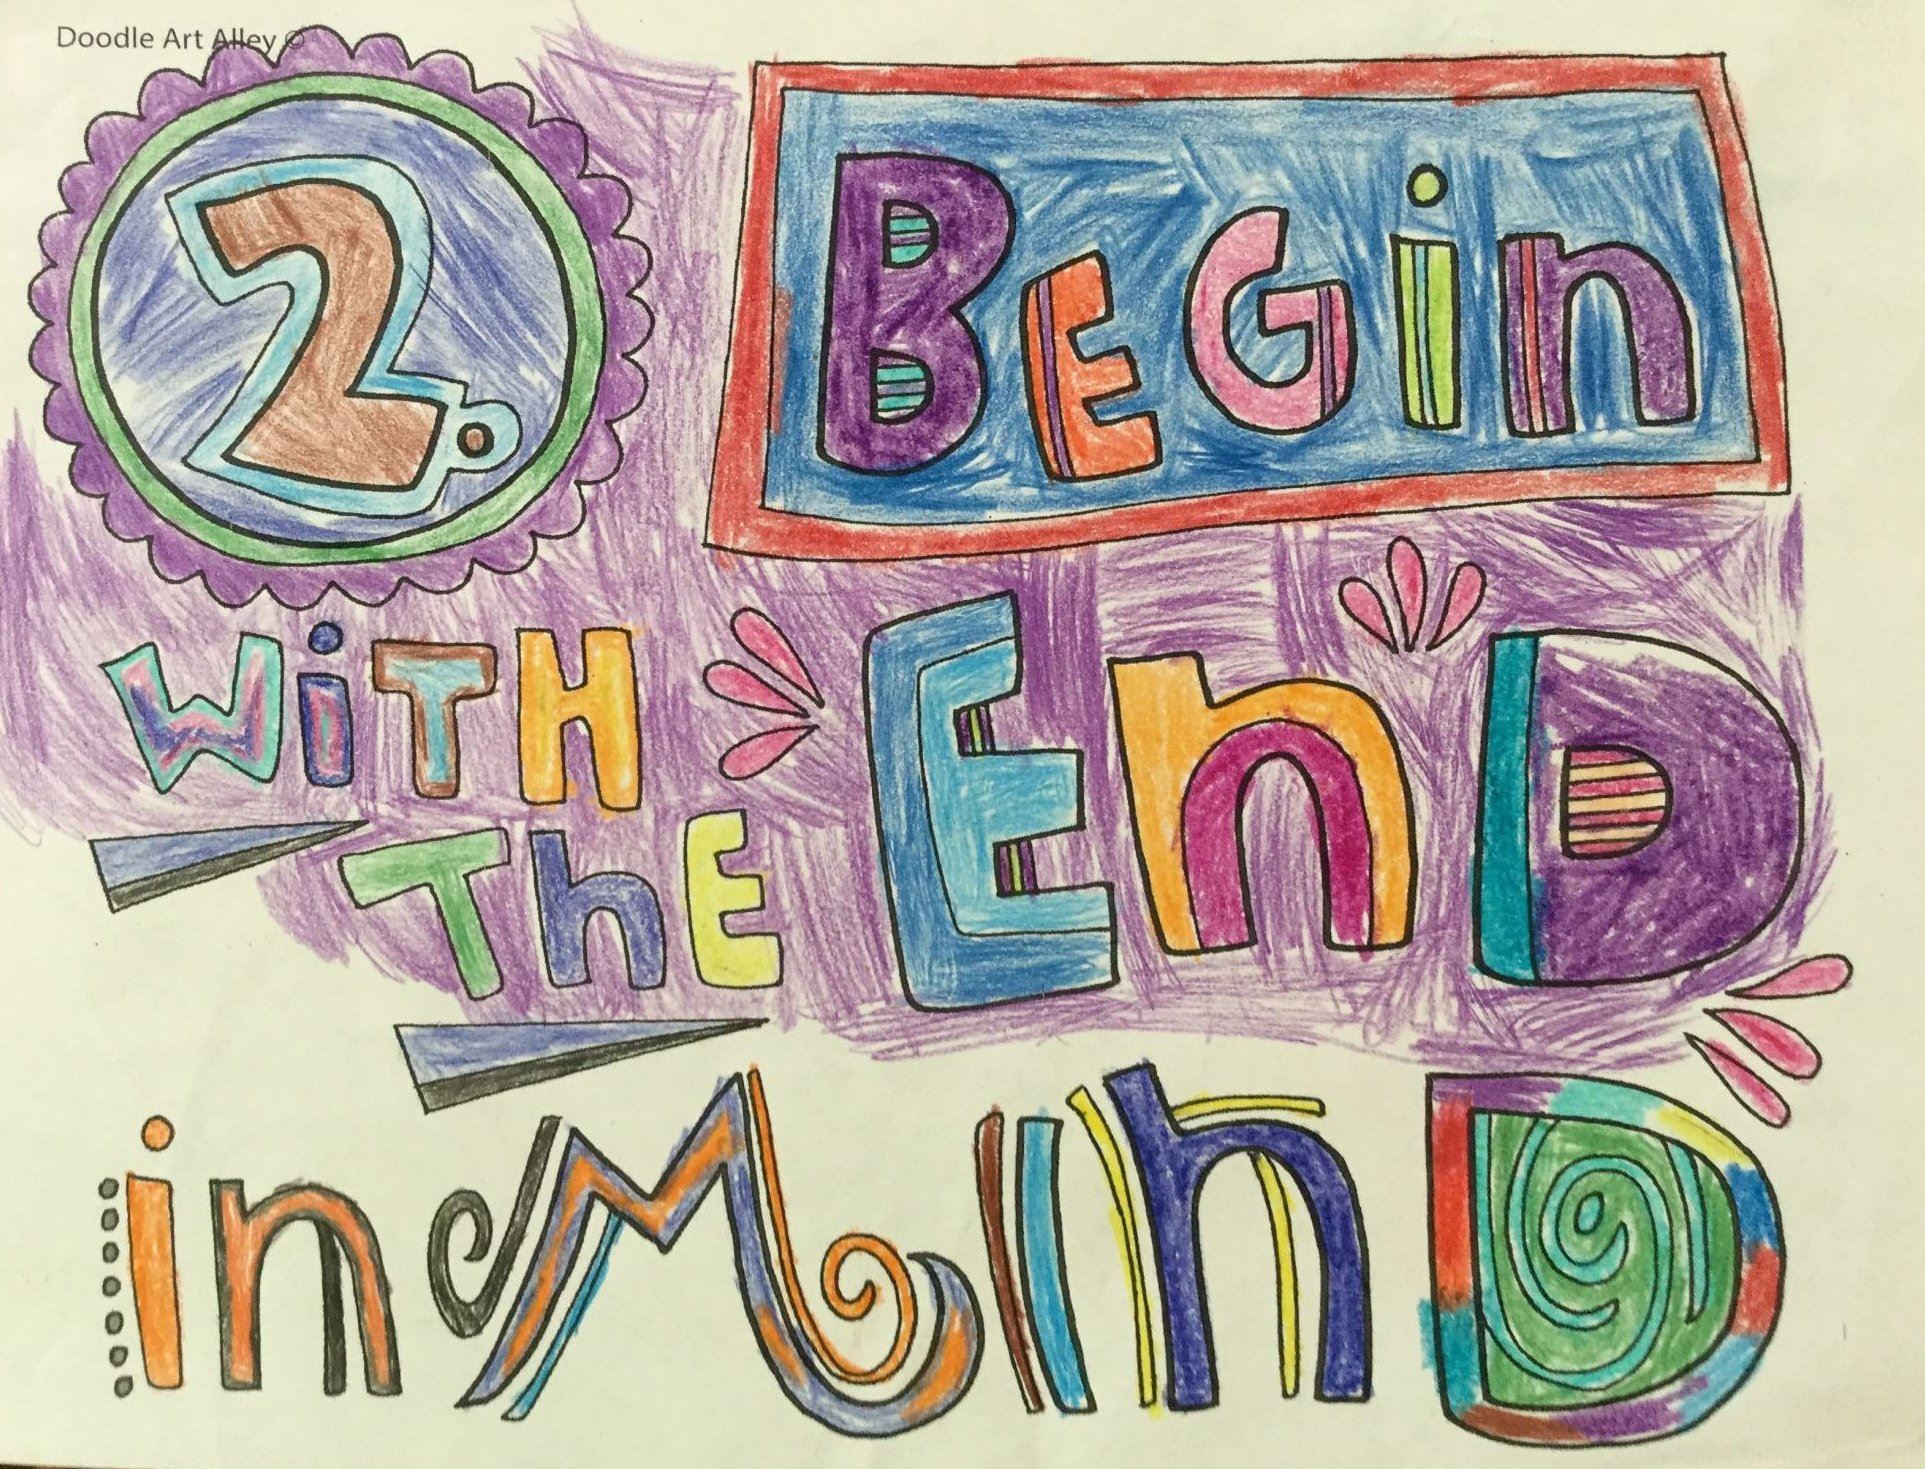 Doodle Art Alley ©
2. BEGin
WiTH
ThE EnD
in MinD